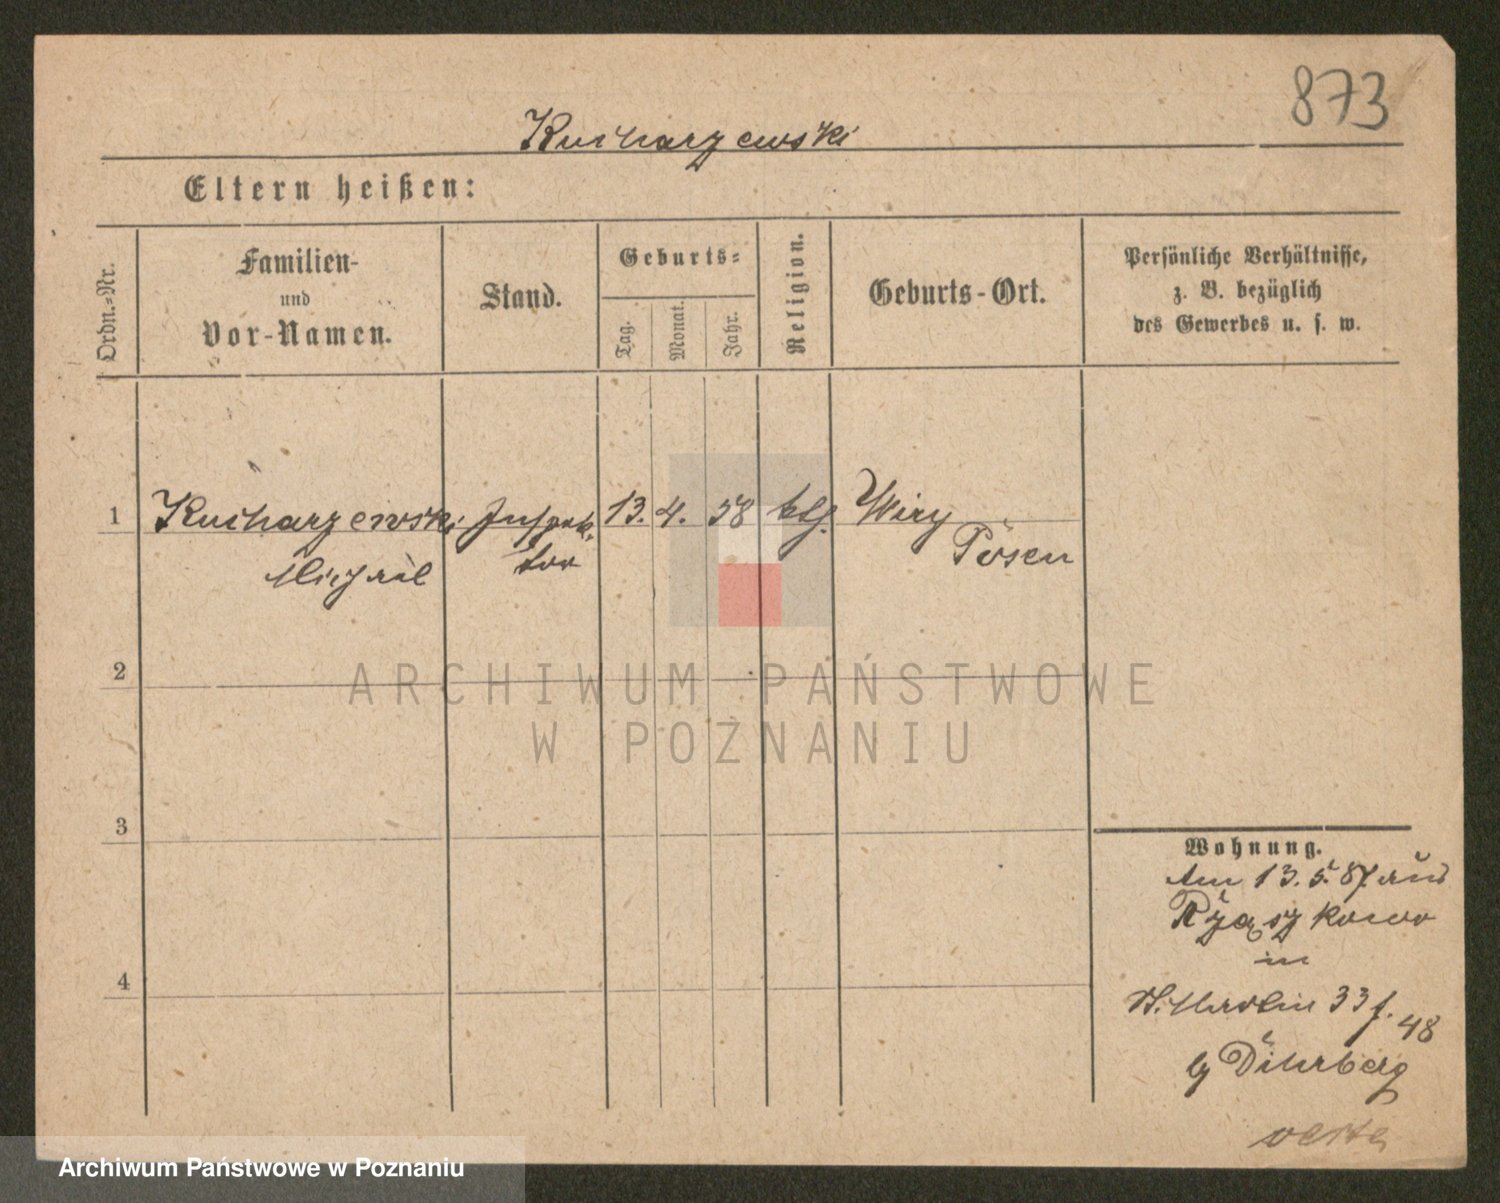 873
Kucharzewski
Eltern heißen:
Ordn.-Nr.
Familien-
und
Vor-Namen.
Stand.
Geburts-
Tag.
Monat.
Jahr.
Religion.
Geburts-Ort.
Persönliche Verhältnisse,
z. B. bezüglich
des Gewerbes u. s. w.
1 Kucharzewski Inspek- 13. 4. 58 ktf. Wiry
Michael tor Posen
2
ARCHIWUM PAŃSTWOWE
W POZNANIU
3
Wohnung.
Am 13. 5. 87 aus
in
4
St. Martin 33 f. 48
verte
Archiwum Państwowe w Poznaniu